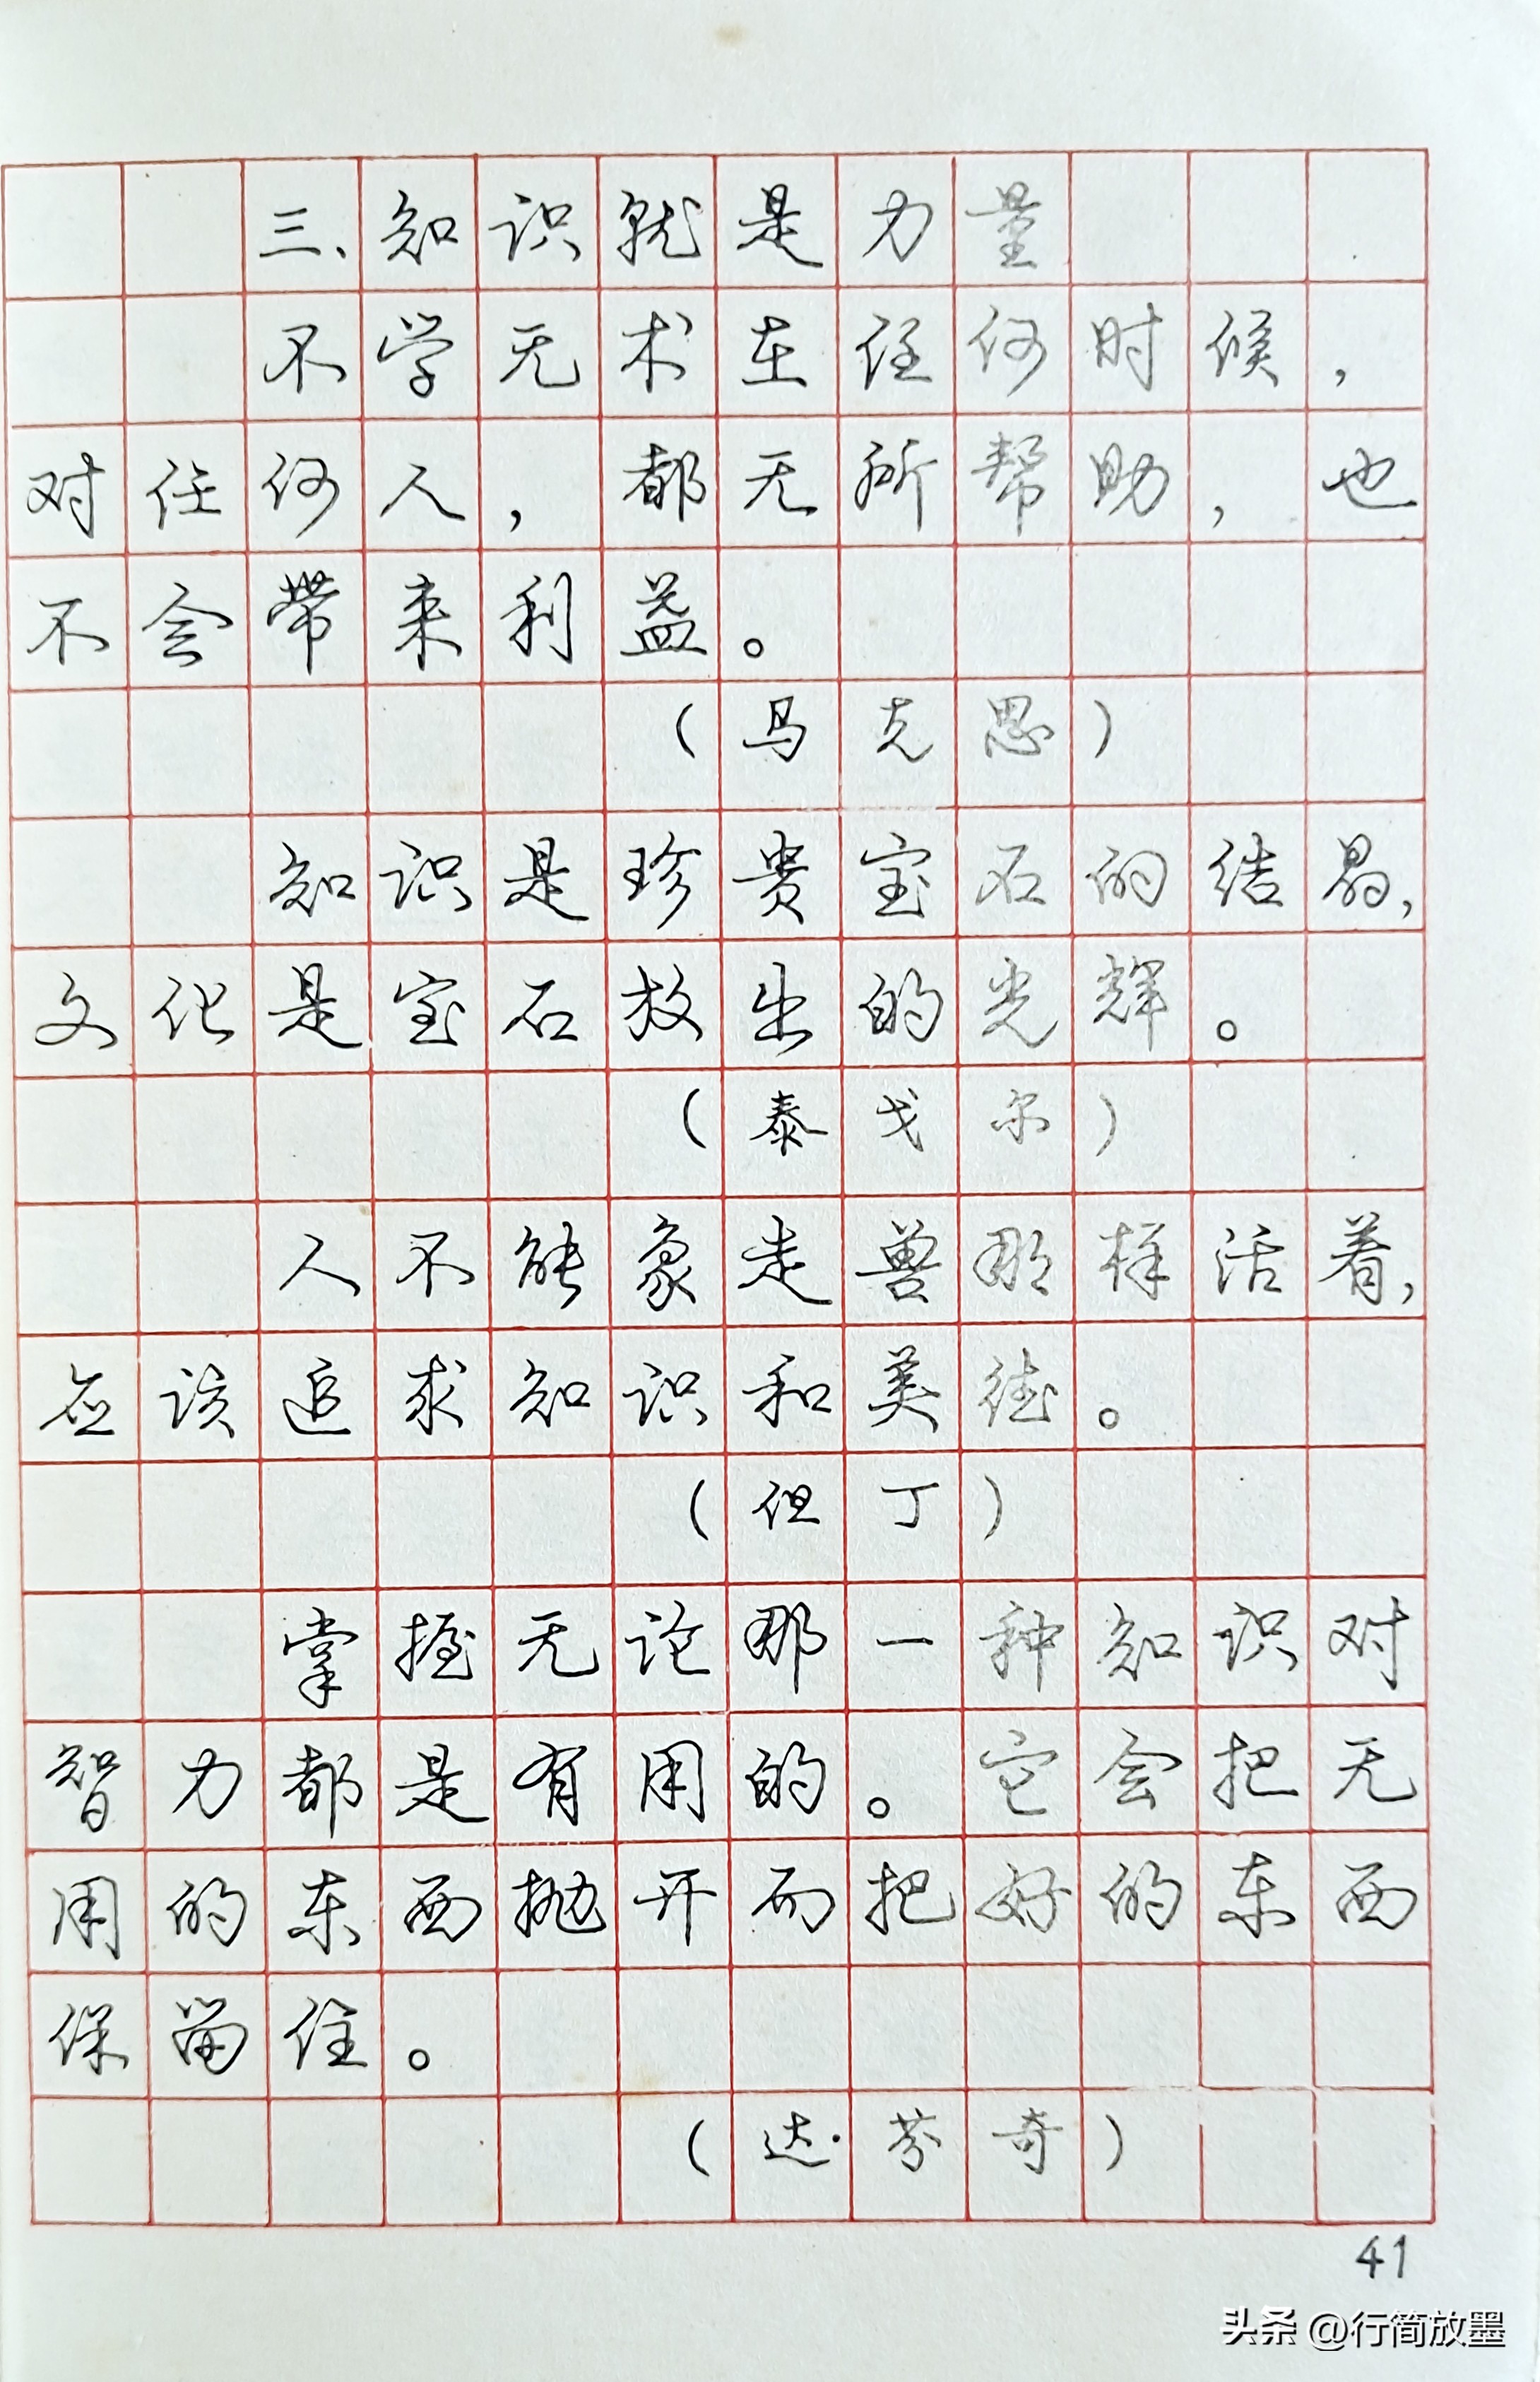 三、知识就是力量
不学无术在任何时候，
对任何人，都无所帮助，也
不会带来利益。
（马克思）
知识是珍贵宝石的结晶，
文化是宝石放出的光辉。
（泰戈尔）
人不能象走兽那样活着，
应该追求知识和美德。
（但丁）
掌握无论那一种知识对
智力都是有用的。它会把无
用的东西抛开而把好的东西
保留住。
（达·芬奇）
41
头条 @行简放墨